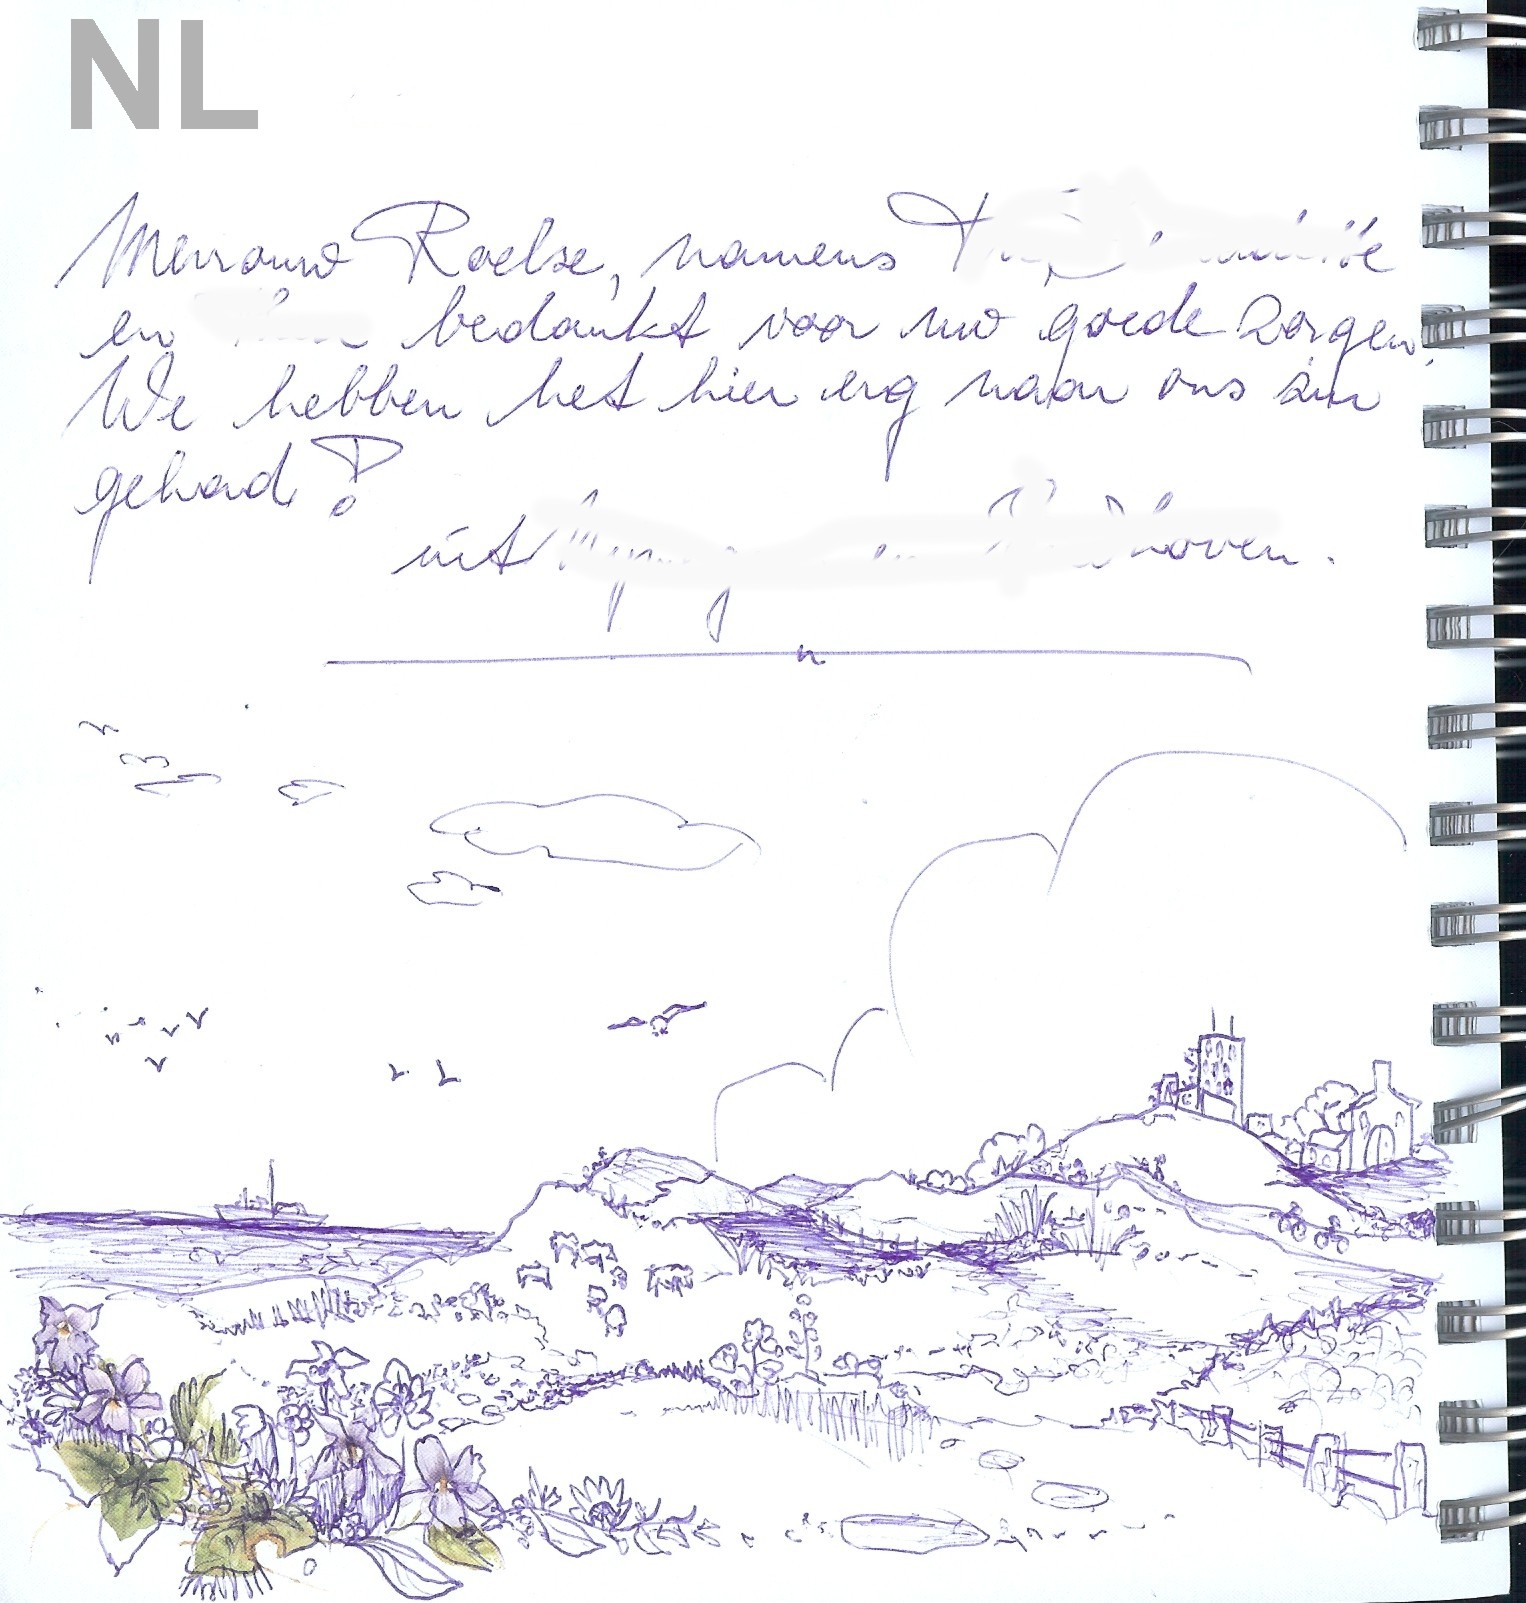 NL
Mevrouw Roelse, namens
en bedankt voor uw goede zorgen.
We hebben het hier erg naar ons zin
gehad!
uit